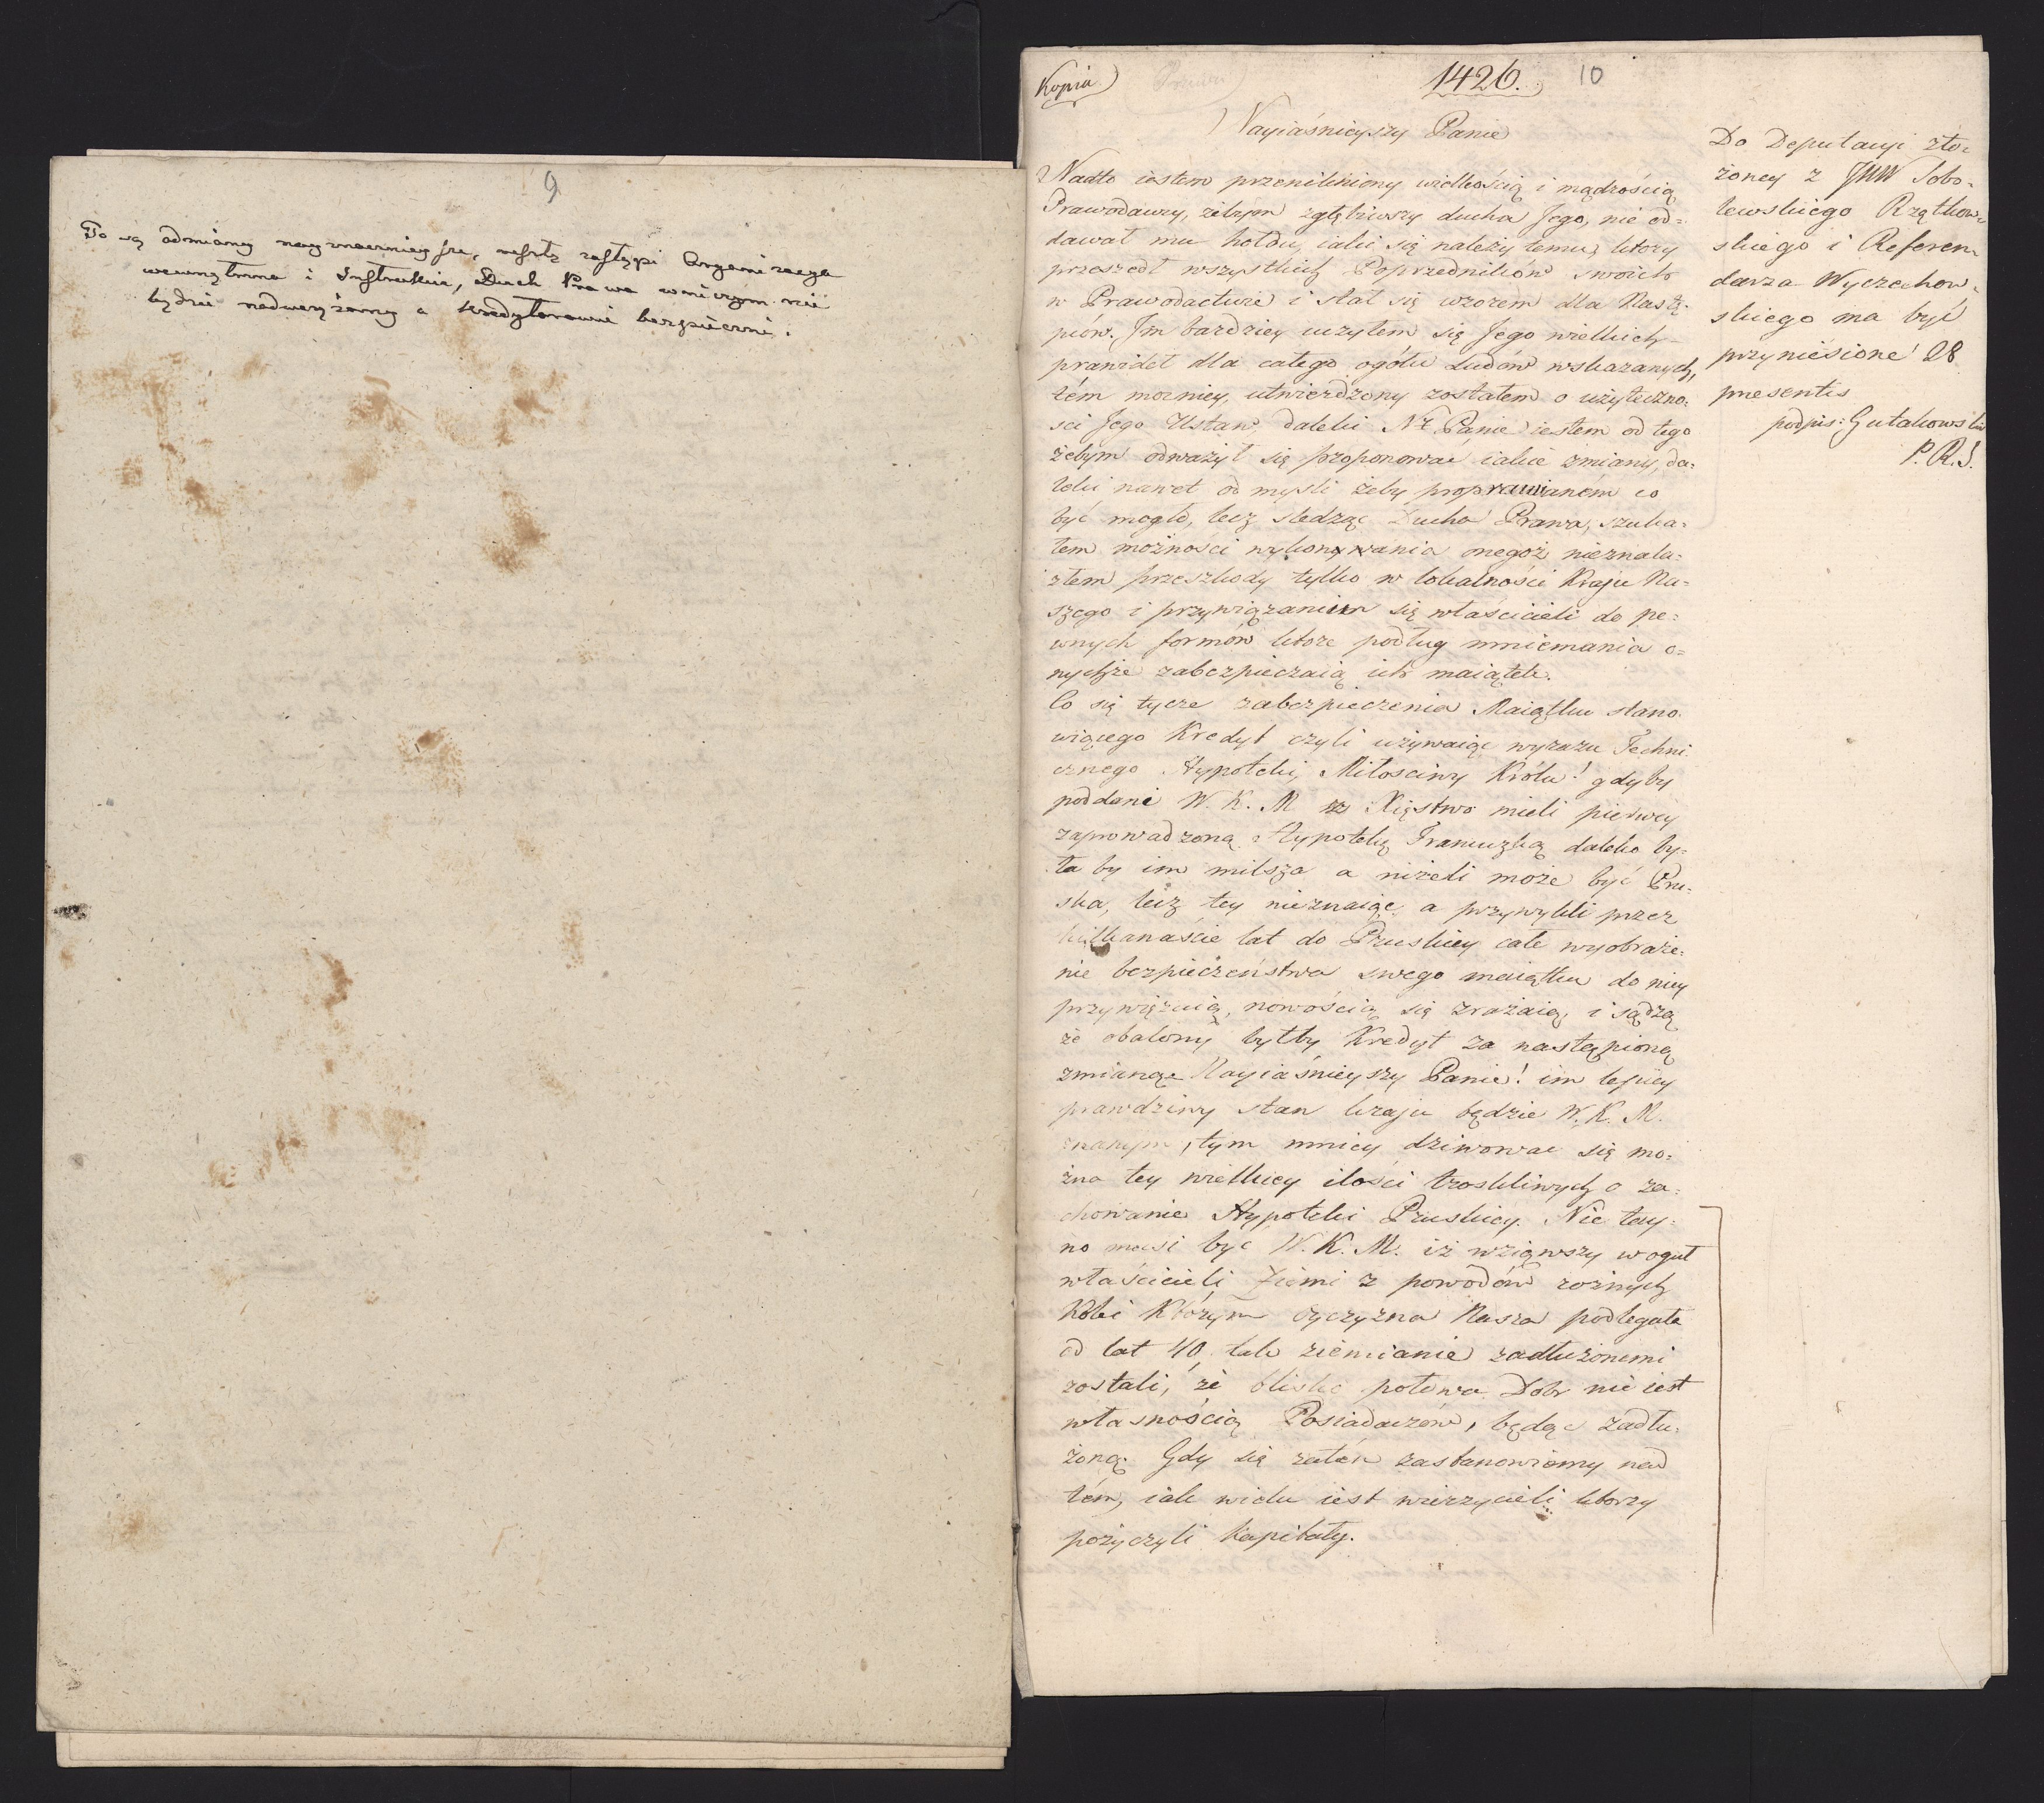 9
To są odmiany nayznacznieysze, resztę zastąpi Organizacya
wewnętrzna i Instrukcia, Duch Prawa wniczym nie
będzie nadwerężony a kredytorowie bezpieczni.
Kopia
1426. 10
Nayiaśnieyszy Panie
Nadto iestem przenikniony wielkością i mądrością
Prawodawcy, żebym zgłębiwszy ducha Jego, nie od=
dawał mu hołdu, iaki się należy temu, ktory
przeszedł wszystkich Poprzedników swoich
w Prawodactwie i stał się wzorem dla Nastę=
pców. Im bardziey uczyłem się Jego wielkich
prawideł dla całego ogółu Ludów wskazanych,
tém mocniey utwierdzony zostałem o użyteczno=
sci Jego Ustaw, daleki NŁ Panie iestem od tego
żebym odważył się proponować iakie zmiany, da=
leki nawet od myśli żeby proprawianém co
być mogło, lecz sledząc Ducha Prawa, szuka=
łem możności wykonywania onegoż nieznala=
złem przeszkody tylko w lokalności Kraju Na=
szego i przywiązaniem się właścicieli do pe=
wnych formów ktore podług mniemania o=
nychże zabezpieczaią ich maiątek.
Co się tycze zabezpieczenia Maiątku stano
wiącego Kredyt czyli używaiąc wyrazu Techni
cznego Hypoteki, Miłosciwy Królu! gdyby
poddani W. K. M Xięstwo mieli pierwey
zaprowadzoną Hypotekę Francuzką daleko by=
ła by im milsza a niżeli może być Pru=
ska, lecz tey nieznaiąc a przywykli przez
kilkanaście lat do Pruskiey całe wyobraże=
nie bezpieczeństwa swego maiątku do niey
przywięzuią, nowością się zrażaią, i sądzą
że obalony byłby Kredyt za nastąpioną
zmianą. Nayiaśnieyszy Panie! im lepiey
prawdziwy stan kraju będzie W. K. M.
znanym, tym mniey dziwować się mo=
żna tey wielkiey ilości troskliwych o za=
chowanie Hypoteki Pruskiey. Nie tay=
no musi być W. K. M. iż wziąwszy wogul
właścicieli Ziemi z powodów rożnych
Kolei Którym Oyczyzna Nasza podlegała
od lat 40. tak ziemianie zadłużonemi
zostali, że blisko połowa Dobr nie iest
własnością Posiadaczów, będąc zadłu=
żoną. Gdy się zatém zastanowiemy nad
tém, iak wielu iest wierzycieli ktorzy
pożyczyli Kapitały.
Do Deputacyi zło=
żoney z JWW Sobo=
lewskiego Rzętkow=
skiego i Referen=
darza Wyczechow=
skiego ma być
przyniesione 28
praesentis
podpis: Gutakowski
P. R. S.